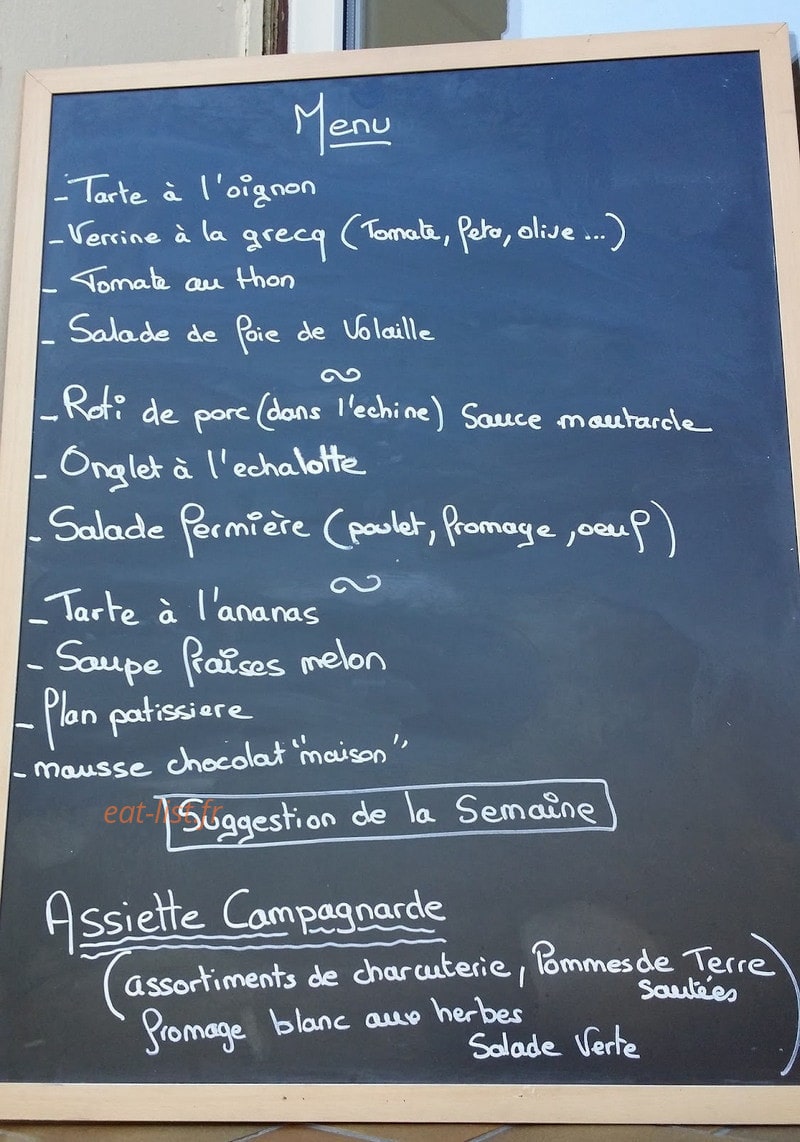 Menu
- Tarte à l'oignon
- Verrine à la grecq (Tomate, feta, olive ...)
- Tomate au thon
- Salade de foie de Volaille
- Roti de porc (dans l'echine) Sauce moutarde
- Onglet à l'echalotte
- Salade fermière (poulet, fromage, oeuf)
- Tarte à l'ananas
- Soupe fraises melon
- flan patissiere
- mousse chocolat "maison"
eat-list.fr
Suggestion de la Semaine
Assiette Campagnarde
(assortiments de charcuterie, Pommes de Terre
Sautées
fromage blanc aux herbes
Salade Verte)